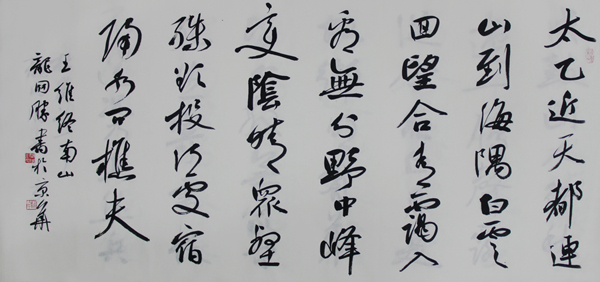 太乙近天都連
山到海隅白雲
回望合青靄入
看無分野中峰
變陰晴衆壑
殊欲投何處宿
隔水問樵夫
王維終南山
龍勝書於京華